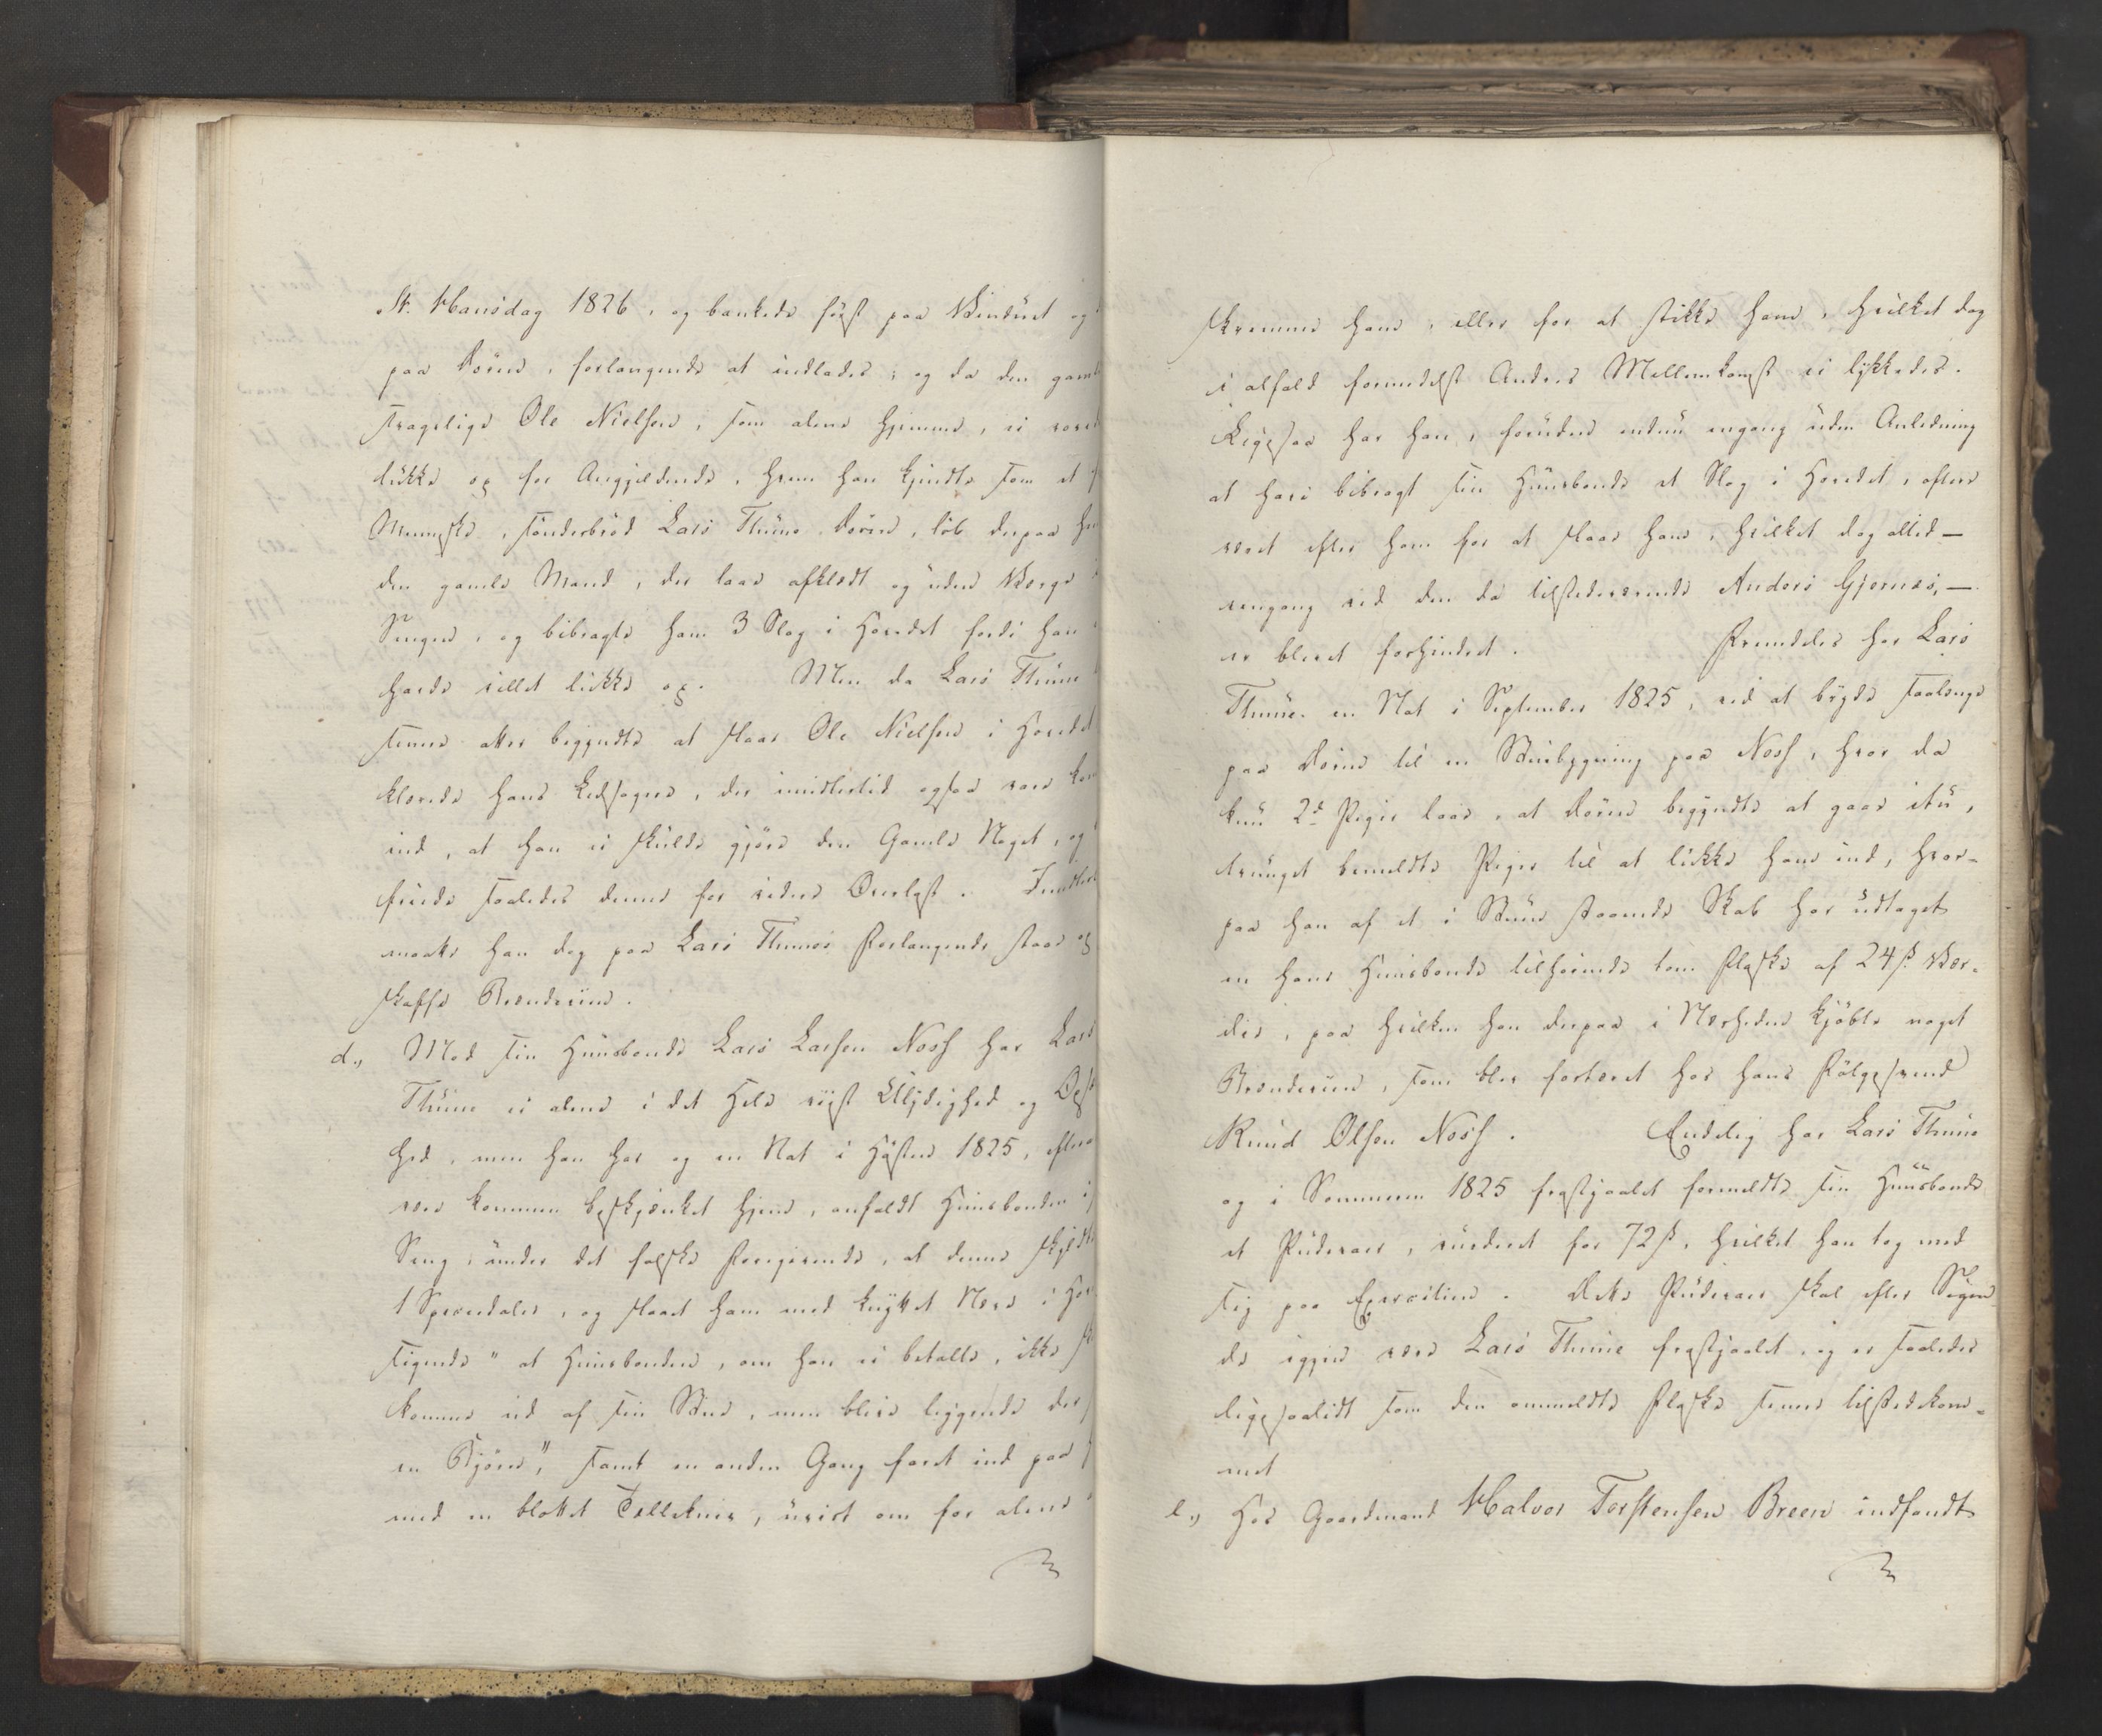 St. Hansdag 1826, og bankede først paa Vinduet og
paa Døren, forlangende at indlades; og da den gamle
svagelige Ole Nielsen, som alene hjemme, ei vovede
lukke op for Angjeldende, hvem han kjendte som et
Menneske, sønderbrød Lars Thune Døren, løb derpaa hen
den gamle Mand, der laae afklædt og uden Værge i
Sengen, og bibragte ham 3 Slag i Hovedet fordi han
havde villet lukke op. Men da Lars Thune
senere atter begyndte at slaae Ole Nielsen i Hovedet
klærede hans Ledsagere, der imidlertid ogsaa vare kom
ind, at han ei skulde gjøre den Gamle Noget, og
friede saaledes denne for videre Overlast. Imidlert
maatte han dog paa Lars Thunes Forlangende staae op
skaffe Brændeviin.
d., Mod sin Huusbonde Lars Larsen Noss har Lars
Thune ei alene i det Hele viist Ulydighed og Opst
hed, men han har og en Nat i Høsten 1825, efter
være kommen beskjænket hjem, anfaldt Huusbonden i
Seng, under det falske Foregivende, at denne skyldte
1 Speciedaler, og slaaet ham med knyttet Næve i Hov
sigende "at Huusbonden, om han ei betalte, ikke sk
komme ud af sin Stue, men blive liggende der
en Bjørn", samt en anden Gang faret ind paa
med en blottet Tællekniv, uvist om for alene
skræmme ham, eller for at stikke ham, hvilket dog
i alfald formedelst Andres Mellemkomst ei lykkedes.
Ligesaa har han, foruden endnu engang uden Anledning
at have bibragt sin Huusbonde et Slag i Hovedet, oftere
været efter ham for at slaae ham, hvilket dog altid -
eengang ved den da tilstedeværende Anders Gjernes, -
er blevet forhindret. Fremdeles har Lars
Thune en Nat i September 1825, ved at bryde saalænge
paa Døren til en Stuebygning paa Noss, hvor da
kun 2de Piger laae, at Døren begyndte at gaae itu,
tvunget bemeldte Piger til at lukke ham ind, hvor-
paa han af et i Stuen staaende Skab har udtaget
en hans Huusbonde tilhørende tom Flaske af 24 ß Vær-
die, paa hvilken han derpaa i Nærheden kjøbte noget
Brændeviin, som blev fortæret hos hans Følgesvend
Knud Olsen Noss. Endelig har Lars Thune
og i Sommeren 1825 frastjaalet formeldte sin Huusbonde
et Pudevaer, vurderet for 72 ß, hvilket han tog med
sig paa Exercitien. Dette Pudevaer skal efter Sigen-
de igjen være Lars Thune frastjaalet, og er saaledes
ligesaalidt som den ommeldte Flaske senere tilstedekom-
met
e., Hos Gaardmand Halvor Torstensen Breen indfandt